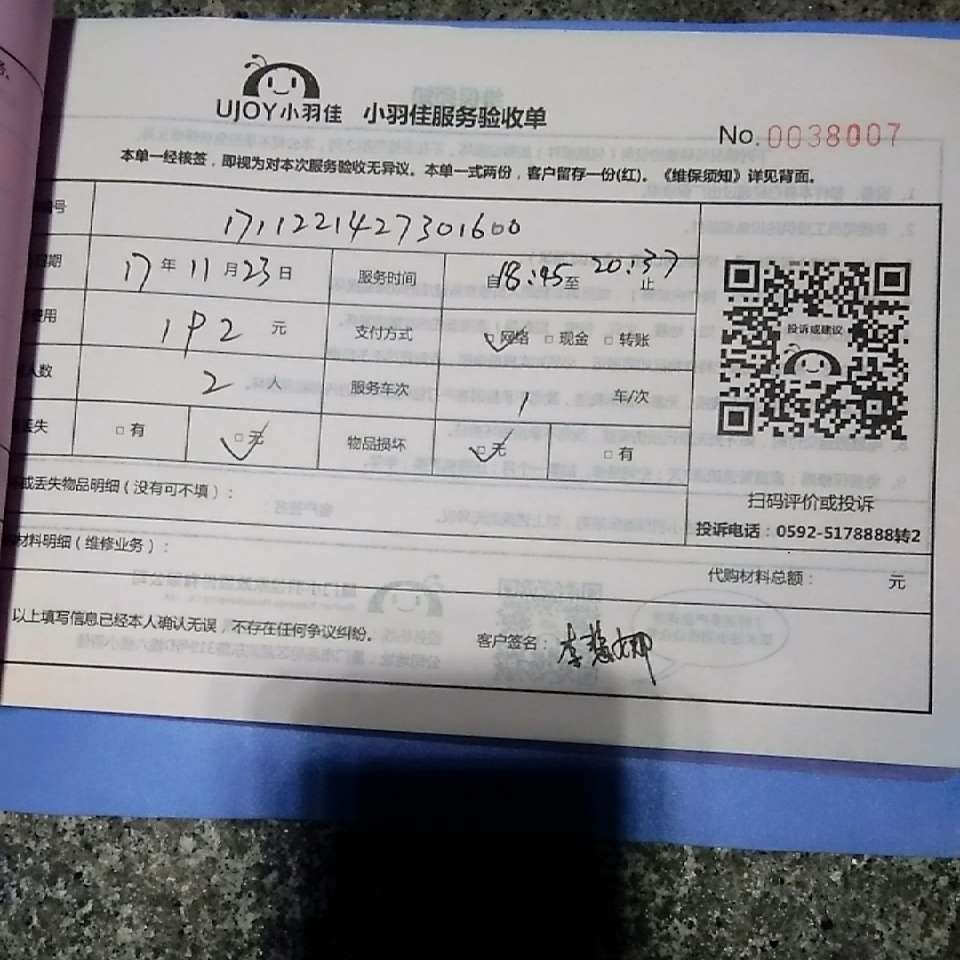 UJOY小羽佳 小羽佳服务验收单
No.0038007
本单一经核签，即视为对本次服务验收无异议。本单一式两份，客户留存一份(红)。《维保须知》详见背面。
号 171122142730 1600
日期 17年11月23日 服务时间 自18:45至20:37止
费用 192元 支付方式 ☑网络 □现金 □转账
人数 2人 服务车次 1车/次
丢失 □有 ☑无 物品损坏 ☑无 □有
投诉或建议
扫码评价或投诉
投诉电话：0592-5178888转2
或丢失物品明细（没有可不填）：
材料明细（维修业务）：
代购材料总额： 元
以上填写信息已经本人确认无误，不存在任何争议纠纷。 客户签名：李慧娜